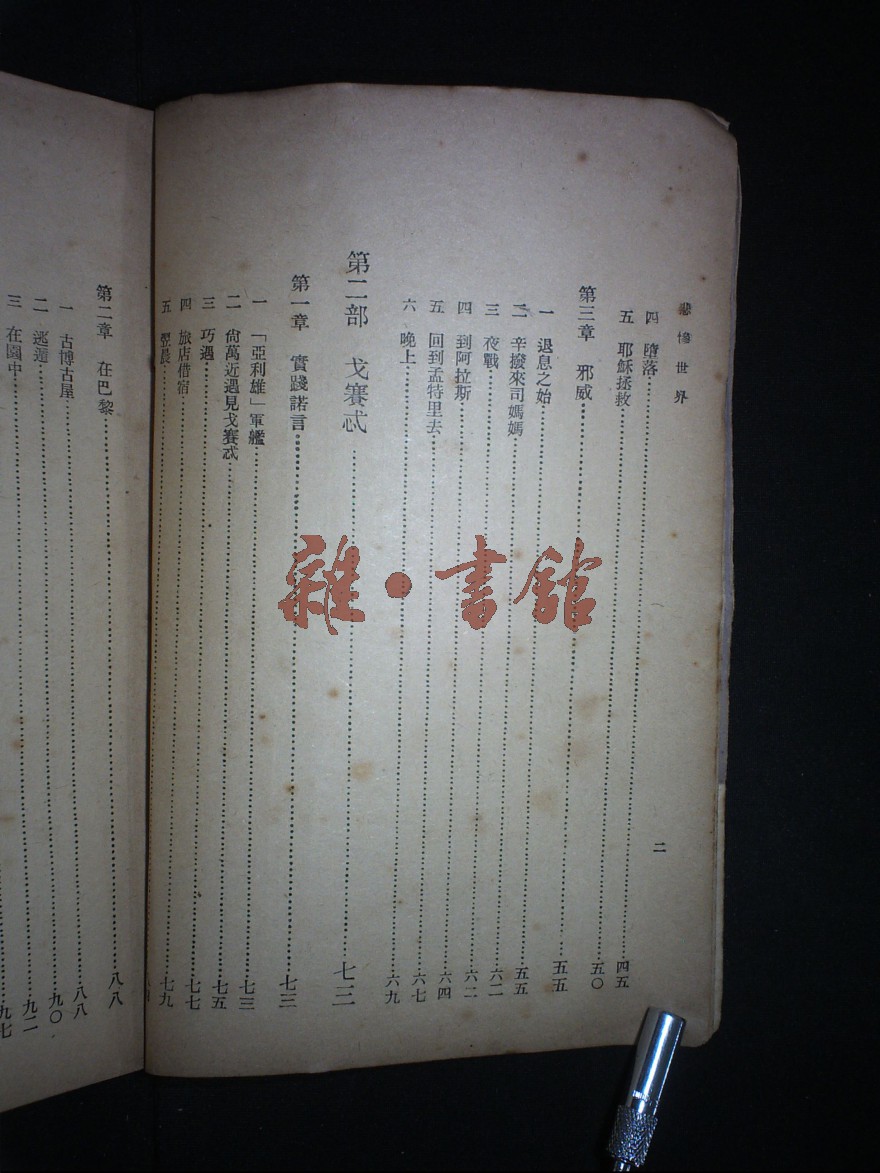 悲慘世界
二
四 墮落 四五
五 耶穌拯救 五〇
第三章 邪威 五五
一 退息之始 五五
二 辛撥來司媽媽 六二
三 夜戰 六二
四 到阿拉斯 六四
五 回到孟特里去 六七
六 晚上 六九
第二部 戈賽忒 七三
第一章 實踐諾言 七三
一 「亞利雄」軍艦 七三
二 尙萬近遇見戈賽忒 七五
三 巧遇 七七
四 旅店借宿 七九
五 翌晨
第二章 在巴黎 八八
一 古博古屋 八八
二 逃遁 九〇
三 在園中 九二
九七
雜·書館